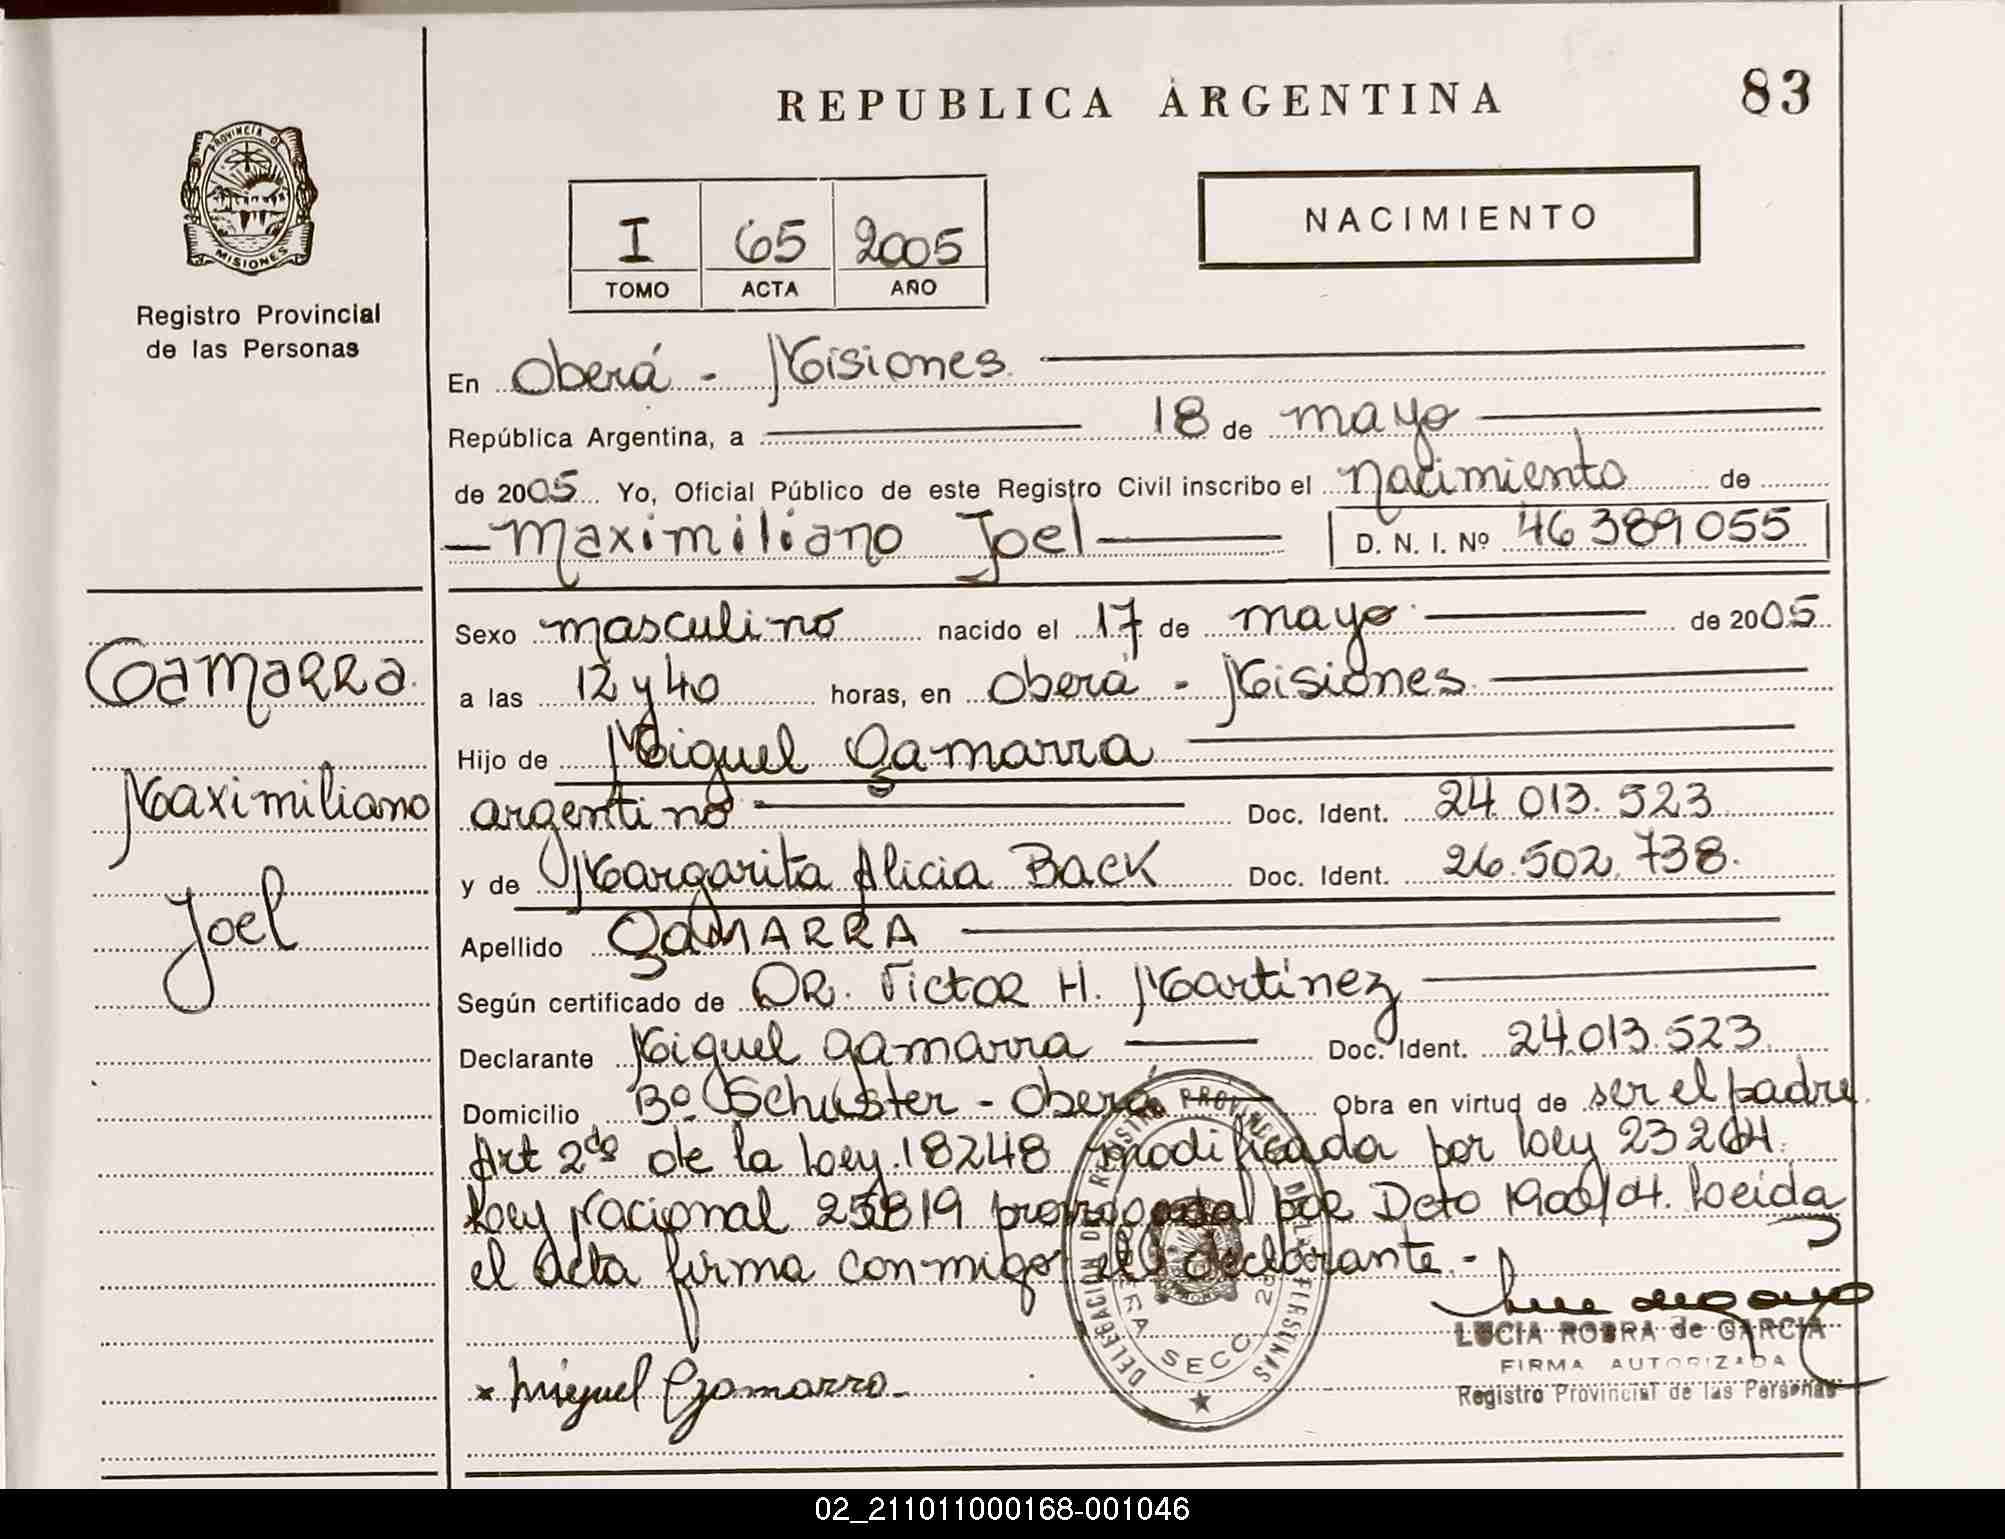 REPUBLICA ARGENTINA
83
PROVINCIA D
MISIONES
Registro Provincial
de las Personas
I 65 2005
TOMO ACTA AÑO
NACIMIENTO
En Oberá - Misiones
República Argentina, a 18 de mayo
de 2005 Yo, Oficial Público de este Registro Civil inscribo el Nacimiento de
Maximiliano Joel
D. N. I. Nº 46389055
Gamarra
Maximiliano
Joel
Sexo masculino nacido el 17 de mayo de 2005
a las 12 y 40 horas, en Oberá - Misiones
Hijo de Miguel Gamarra
argentino Doc. Ident. 24.013.523
y de Margarita Alicia Back Doc. Ident. 26.502.738.
Apellido GAMARRA
Según certificado de DR. Victor H. Martínez
Declarante Miguel Gamarra Doc. Ident. 24.013.523
Domicilio Bº Schuster - Oberá Obra en virtud de ser el padre
Art 2do de la Ley 18248 modificada por Ley 23264.
Ley Nacional 25819 por Deto 1900/04. Leida
el acta firma conmigo el declarante.-
x Miguel Gamarra
DELEGACION REGISTRO PROVINCIAL DE LAS PERSONAS
SECC
LUCIA ROBRA de GARCIA
FIRMA AUTORIZADA
Registro Provincial de las Personas
02_211011000168-001046